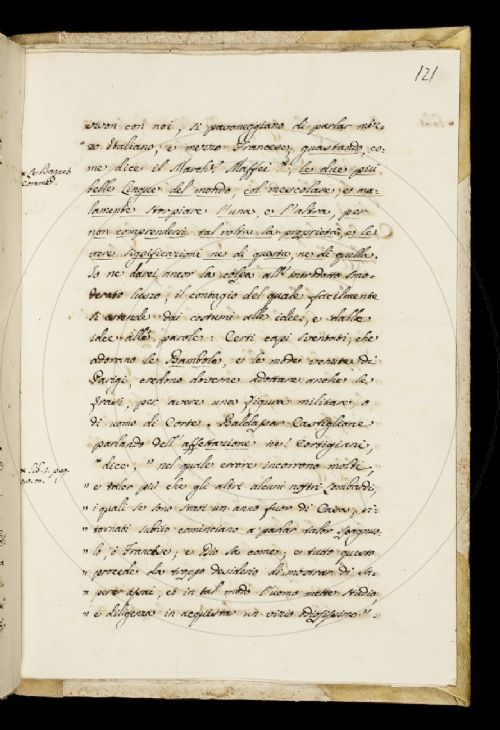 121
vivon con noi, si pavoneggiano di parlar mez-
zo Italiano, e mezzo Francese, guastando, co-
me dice il March.e Maffei *, le due più
* Le Raguet
Commed.
belle Lingue del mondo col mescolare, e ma-
lamente storpiare l'una, e l'altra, per
non comprendersi tal volta la proprietà, e le
vere significazioni ne di questa, ne di quella.
Io ne darei ancor la colpa all'introdotto smo-
derato lusso, il contagio del quale facilmente
si estende dai costumi alle idee, e dalle
idee alle parole: Certi capi sventati, che
adorano le Bambole, e le mode venute di
Parigi, credono doverne adottare anche le
frasi, per avere una figura militare, o
di uomo di Corte. Baldassar Castiglione
parlando dell'affettazione ne' Cortigiani,
* lib. pag.
* dice, " nel quale errore incorrono molti,
" e talor più che gli altri alcuni nostri Lombardi,
" i quali se sono stati un anno fuor di Casa, ri-
" tornati subito cominciano a parlar talor Spagnuo-
" lo, e Francese, e Dio sa come; e tutto questo
" procede da troppo desiderio di mostrar di sa-
" pere assai, e in tal modo l'uomo mette studio
" e diligenza in acquistar un vizio odiosissimo ".